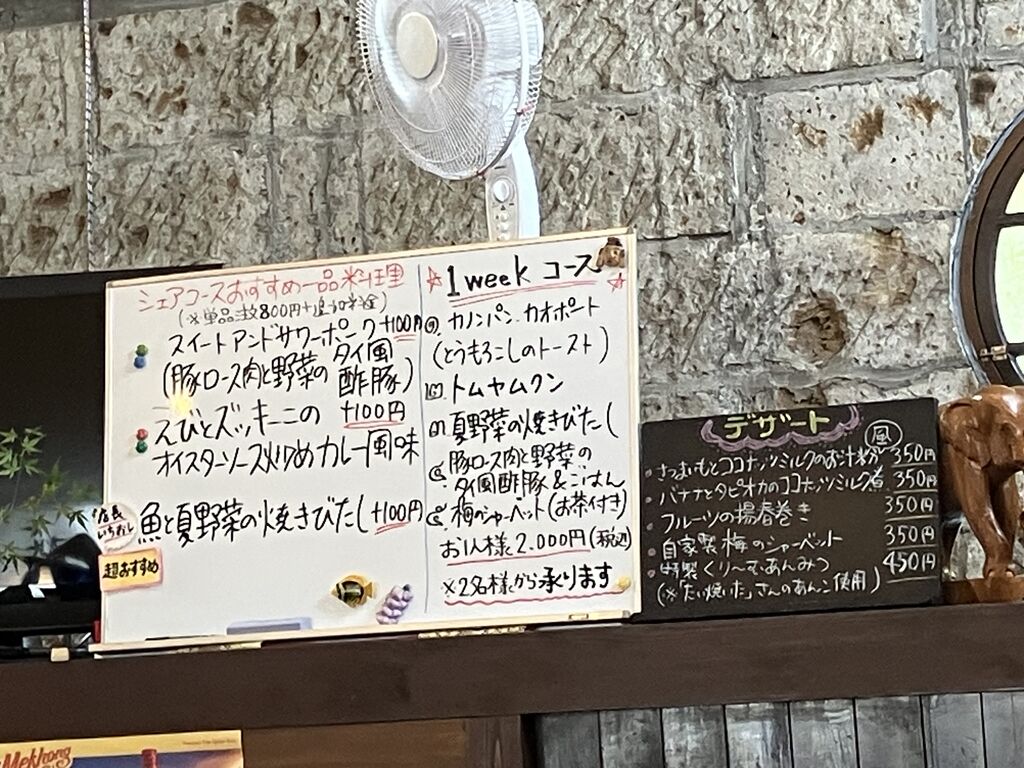 シェアコースおすすめ一品料理
(※単品注文800円+追加料金)
スイートアンドサワーポーク +100円
(豚ロース肉と野菜のタイ風酢豚)
えびとズッキーニの +100円
オイスターソース炒めカレー風味
店長いちおし
魚と夏野菜の焼きびたし +100円
超おすすめ
1week コース
カノンパン.カオポート
(とうもろこしのトースト)
トムヤムクン
夏野菜の焼きびたし
豚ロース肉と野菜の
タイ風酢豚&ごはん
梅のシャーベット(お茶付き)
お1人様 2.000円(税込)
※2名様から承ります
デザート
・さつまいもとココナッツミルクのお汁粉風 350円
・バナナとタピオカのココナッツミルク煮 350円
・フルーツの揚春巻き 350円
・自家製梅のシャーベット 350円
・特製くりーむあんみつ 450円
(※"たい焼いた"さんのあんこ使用)
Mekhong